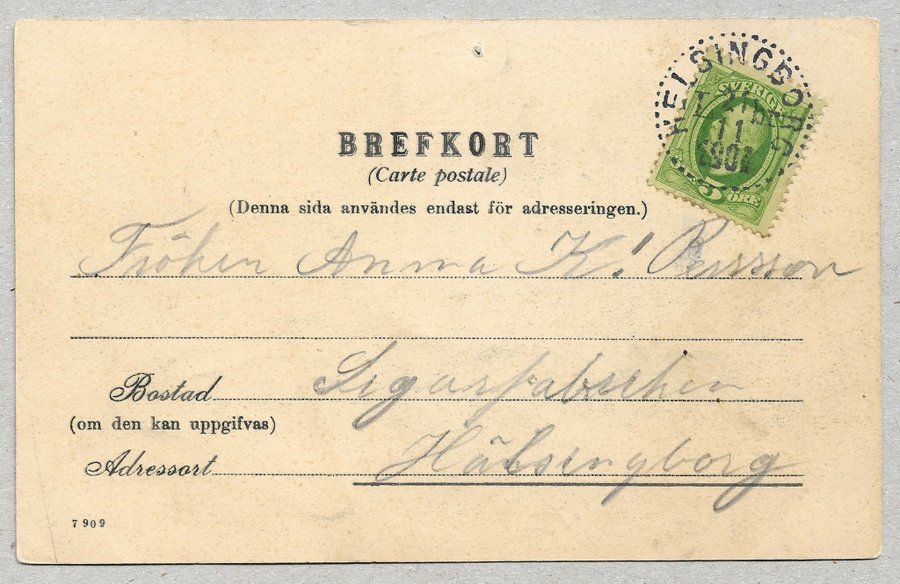 HELSINGBORG
21
11
1901
SVERIGE
5 ÖRE
BREFKORT
(Carte postale)
(Denna sida användes endast för adresseringen.)
Fröken Anna K. Persson
Bostad Sigarfabriken
(om den kan uppgifvas)
Adressort Hälsingborg
7909